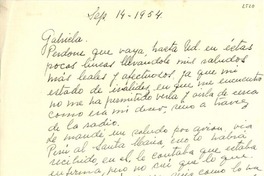 Sep. 14-1954
Gabriela.
Perdone que vaya hasta Ud en éstas
pocas líneas llevándole mis saludos
más leales y afectuosos, ya que mi
estado de invalidez en que me encuentro
no me ha permitido verla y oirla de cerca
como era mi deseo, sino a través
de la radio.
Le mandé un saludo por avion via
Perú al Santa Maria, no lo habrá
recibido, en el le contaba que estaba
enferma, pero no creí que lo